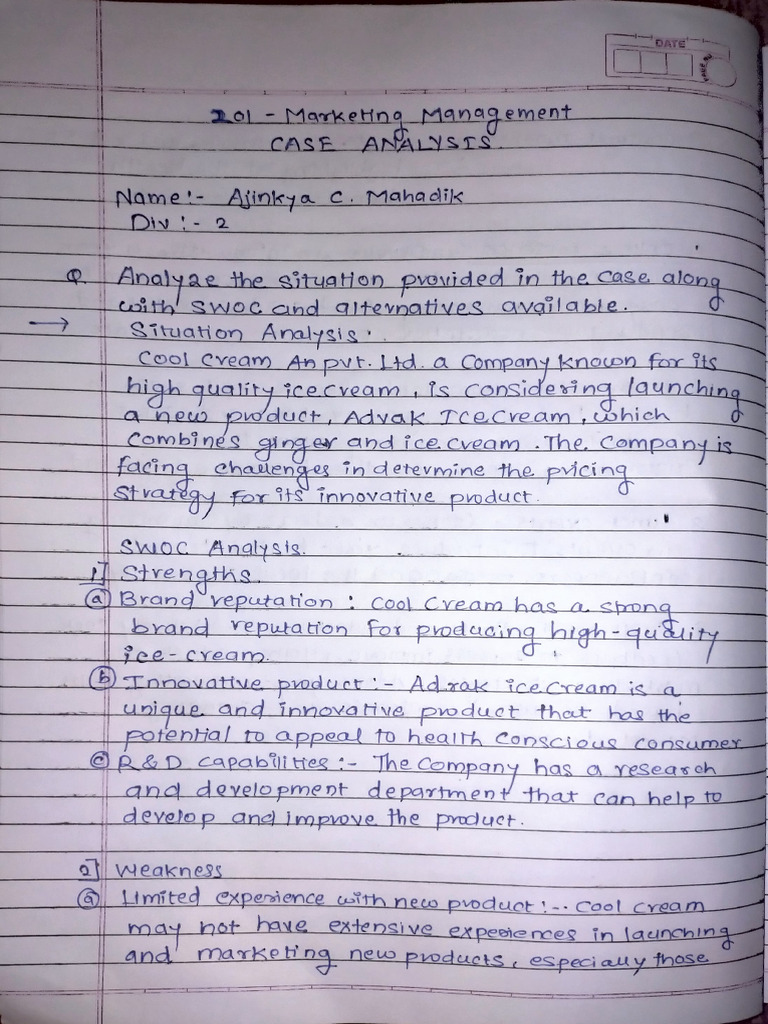 DATE
201 - Marketing Management
CASE ANALYSIS.
Name :- Ajinkya C. Mahadik
Div :- 2
Q. Analyze the situation provided in the case along
with SWOC and alternatives available.
→ Situation Analysis.
Cool Cream An pvt. Ltd. a Company known for its
high quality ice cream, is considering launching
a new product, Advak Ice Cream, which
combines ginger and ice cream. The Company is
facing challenges in determine the pricing
strategy for its innovative product.
SWOC Analysis.
1] Strengths.
(a) Brand reputation : Cool Cream has a strong
brand reputation for producing high-quality
ice-cream.
(b) Innovative product :- Adrak ice cream is a
unique and innovative product that has the
potential to appeal to health conscious consumer
(c) R & D capabilities :- The Company has a research
and development department that can help to
develop and improve the product.
2] Weakness
(a) Limited experience with new product :-. Cool Cream
may not have extensive experiences in launching
and marketing new products, especially those